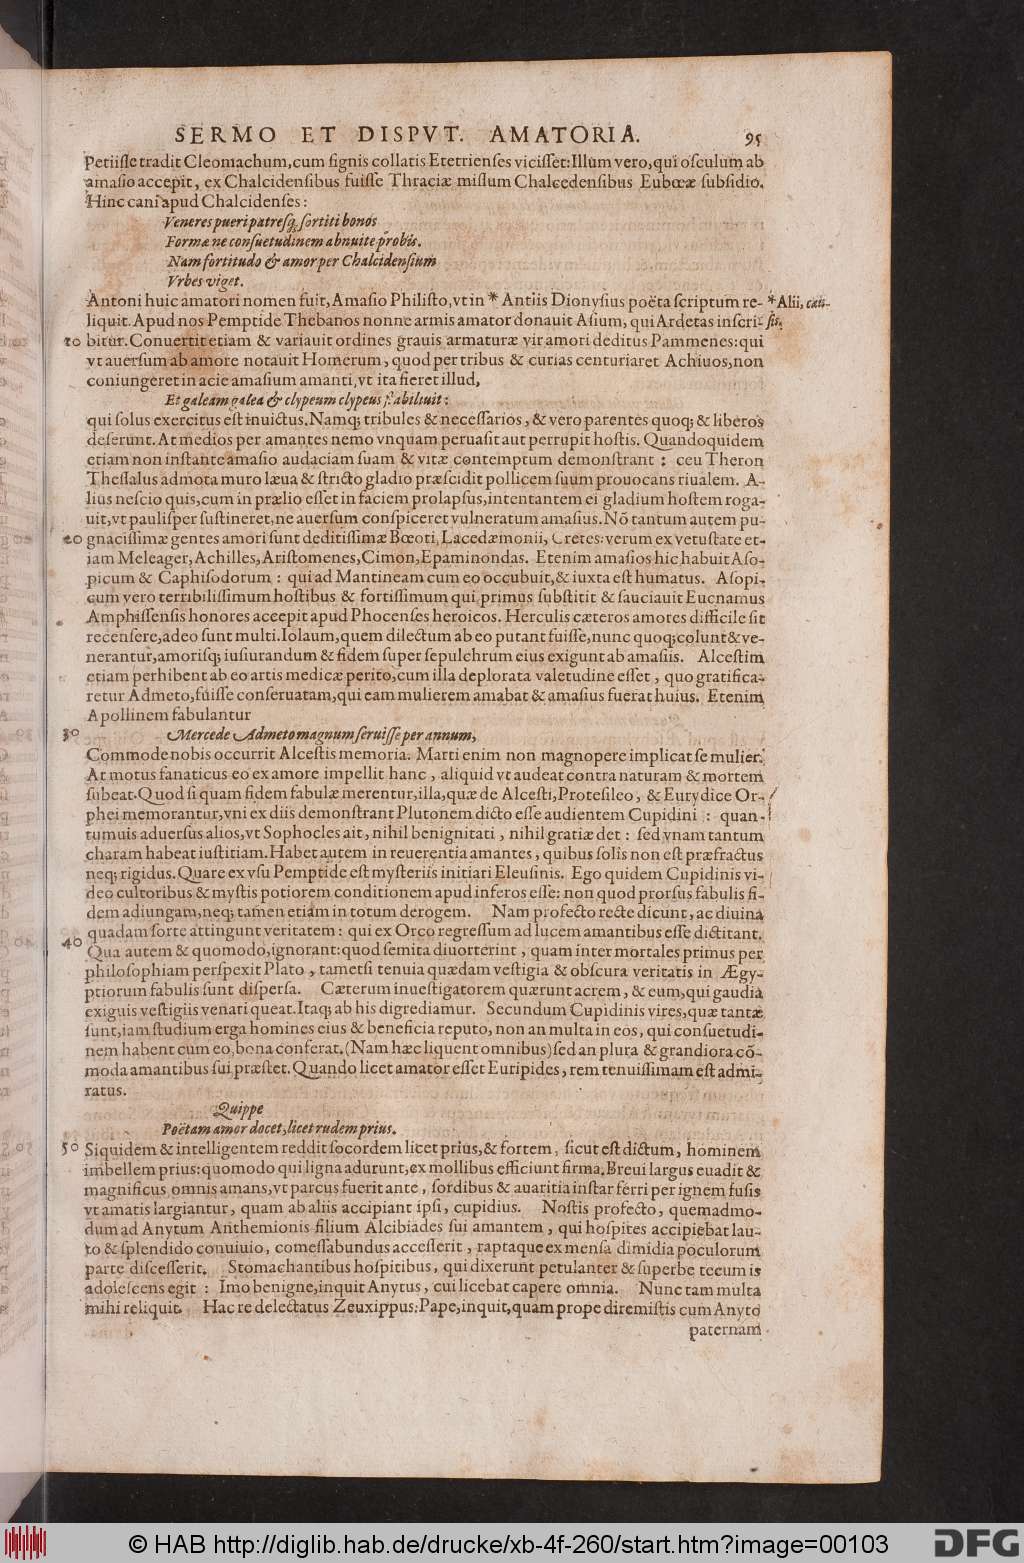 SERMO ET DISPVT. AMATORIA. 95
Petiisse tradit Cleomachum, cum signis collatis Eretrienses vicisset: Illum vero, qui osculum ab
amasio accepit, ex Chalcidensibus fuisse Thraciæ missum Chalcedensibus Eubœæ subsidio.
Hinc cani apud Chalcidenses:
Veneres pueri patresq; sortiti bonos
Formæ ne consuetudinem abnuite probis.
Nam fortitudo & amor per Chalcidensium
Vrbes viget.
Antoni huic amatori nomen fuit, Amasio Philisto, vt in * Antiis Dionysius poëta scriptum re-
* Alii, cau-
liquit. Apud nos Pemptide Thebanos nonne armis amator donauit Asium, qui Ardetas inscri-
sis.
10 bitur. Conuertit etiam & variauit ordines grauis armaturæ vir amori deditus Pammenes: qui
vt auersum ab amore notauit Homerum, quod per tribus & curias centuriaret Achiuos, non
coniungeret in acie amasium amanti, vt ita fieret illud,
Et galeam galea & clypeum clypeus stabiliuit:
qui solus exercitus est inuictus. Namq; tribules & necessarios, & vero parentes quoq; & liberos
deserunt. At medios per amantes nemo vnquam peruasit aut perrupit hostis. Quandoquidem
etiam non instante amasio audaciam suam & vitæ contemptum demonstrant : ceu Theron
Thessalus admota muro læua & stricto gladio præscidit pollicem suum prouocans riualem. A-
lius nescio quis, cum in prælio esset in faciem prolapsus, intentantem ei gladium hostem roga-
uit, vt paulisper sustineret, ne auersum conspiceret vulneratum amasius. Nō tantum autem pu-
20 gnacissimæ gentes amori sunt deditissimæ Bœoti, Lacedæmonii, Cretes: verum ex vetustate et-
iam Meleager, Achilles, Aristomenes, Cimon, Epaminondas. Etenim amasios hic habuit Aso-
picum & Caphisodorum : qui ad Mantineam cum eo occubuit, & iuxta est humatus. Asopi-
cum vero terribilissimum hostibus & fortissimum qui primus substitit & sauciauit Eucnamus
Amphissensis honores accepit apud Phocenses heroicos. Herculis cæteros amores difficile sit
recensere, adeo sunt multi. Iolaum, quem dilectum ab eo putant fuisse, nunc quoq; colunt & ve-
nerantur, amorisq; iusiurandum & fidem super sepulchrum eius exigunt ab amasiis. Alcestim
etiam perhibent ab eo artis medicæ perito, cum illa deplorata valetudine esset, quo gratifica-
retur Admeto, fuisse conseruatam, qui eam mulierem amabat & amasius fuerat huius. Etenim
Apollinem fabulantur
30 Mercede Admeto magnum seruisse per annum,
Commode nobis occurrit Alcestis memoria. Marti enim non magnopere implicat se mulier.
At motus fanaticus eo ex amore impellit hanc, aliquid vt audeat contra naturam & mortem
subeat. Quod si quam fidem fabulæ merentur, illa, quæ de Alcesti, Protesileo, & Eurydice Or-
phei memorantur, vni ex diis demonstrant Plutonem dicto esse audientem Cupidini : quan-
tumuis aduersus alios, vt Sophocles ait, nihil benignitati, nihil gratiæ det : sed vnam tantum
charam habeat iustitiam. Habet autem in reuerentia amantes, quibus solis non est præfractus
neq; rigidus. Quare ex vsu Pemptide est mysteriis initiari Eleusinis. Ego quidem Cupidinis vi-
deo cultoribus & mystis potiorem conditionem apud inferos esse: non quod prorsus fabulis fi-
dem adiungam, neq; tamen etiam in totum derogem. Nam profecto recte dicunt, ac diuina
quadam sorte attingunt veritatem : qui ex Orco regressum ad lucem amantibus esse dictitant.
40 Qua autem & quomodo, ignorant: quod semita diuorterint, quam inter mortales primus per
philosophiam perspexit Plato, tametsi tenuia quædam vestigia & obscura veritatis in Ægy-
ptiorum fabulis sunt dispersa. Cæterum inuestigatorem quærunt acrem, & eum, qui gaudia
exiguis vestigiis venari queat. Itaq; ab his digrediamur. Secundum Cupidinis vires, quæ tantæ
sunt, iam studium erga homines eius & beneficia reputo, non an multa in eos, qui consuetudi-
nem habent cum eo, bona conferat. (Nam hæc liquent omnibus) sed an plura & grandiora cō-
moda amantibus sui præstet. Quando licet amator esset Euripides, rem tenuissimam est admi-
ratus.
Quippe
Poëtam amor docet, licet rudem prius.
50 Siquidem & intelligentem reddit socordem licet prius, & fortem, sicut est dictum, hominem
imbellem prius: quomodo qui ligna adurunt, ex mollibus efficiunt firma. Breui largus euadit &
magnificus omnis amans, vt parcus fuerit ante, sordibus & auaritia instar ferri per ignem fusis
vt amatis largiantur, quam ab aliis accipiant ipsi, cupidius. Nostis profecto, quemadmo-
dum ad Anytum Anthemionis filium Alcibiades sui amantem, qui hospites accipiebat lau-
to & splendido conuiuio, comessabundus accesserit, raptaque ex mensa dimidia poculorum
parte discesserit. Stomachantibus hospitibus, qui dixerunt petulanter & superbe tecum is
adolescens egit : Imo benigne, inquit Anytus, cui licebat capere omnia. Nunc tam multa
mihi reliquit. Hac re delectatus Zeuxippus: Pape, inquit, quam prope diremistis cum Anyto
paternam
© HAB http://diglib.hab.de/drucke/xb-4f-260/start.htm?image=00103
DFG